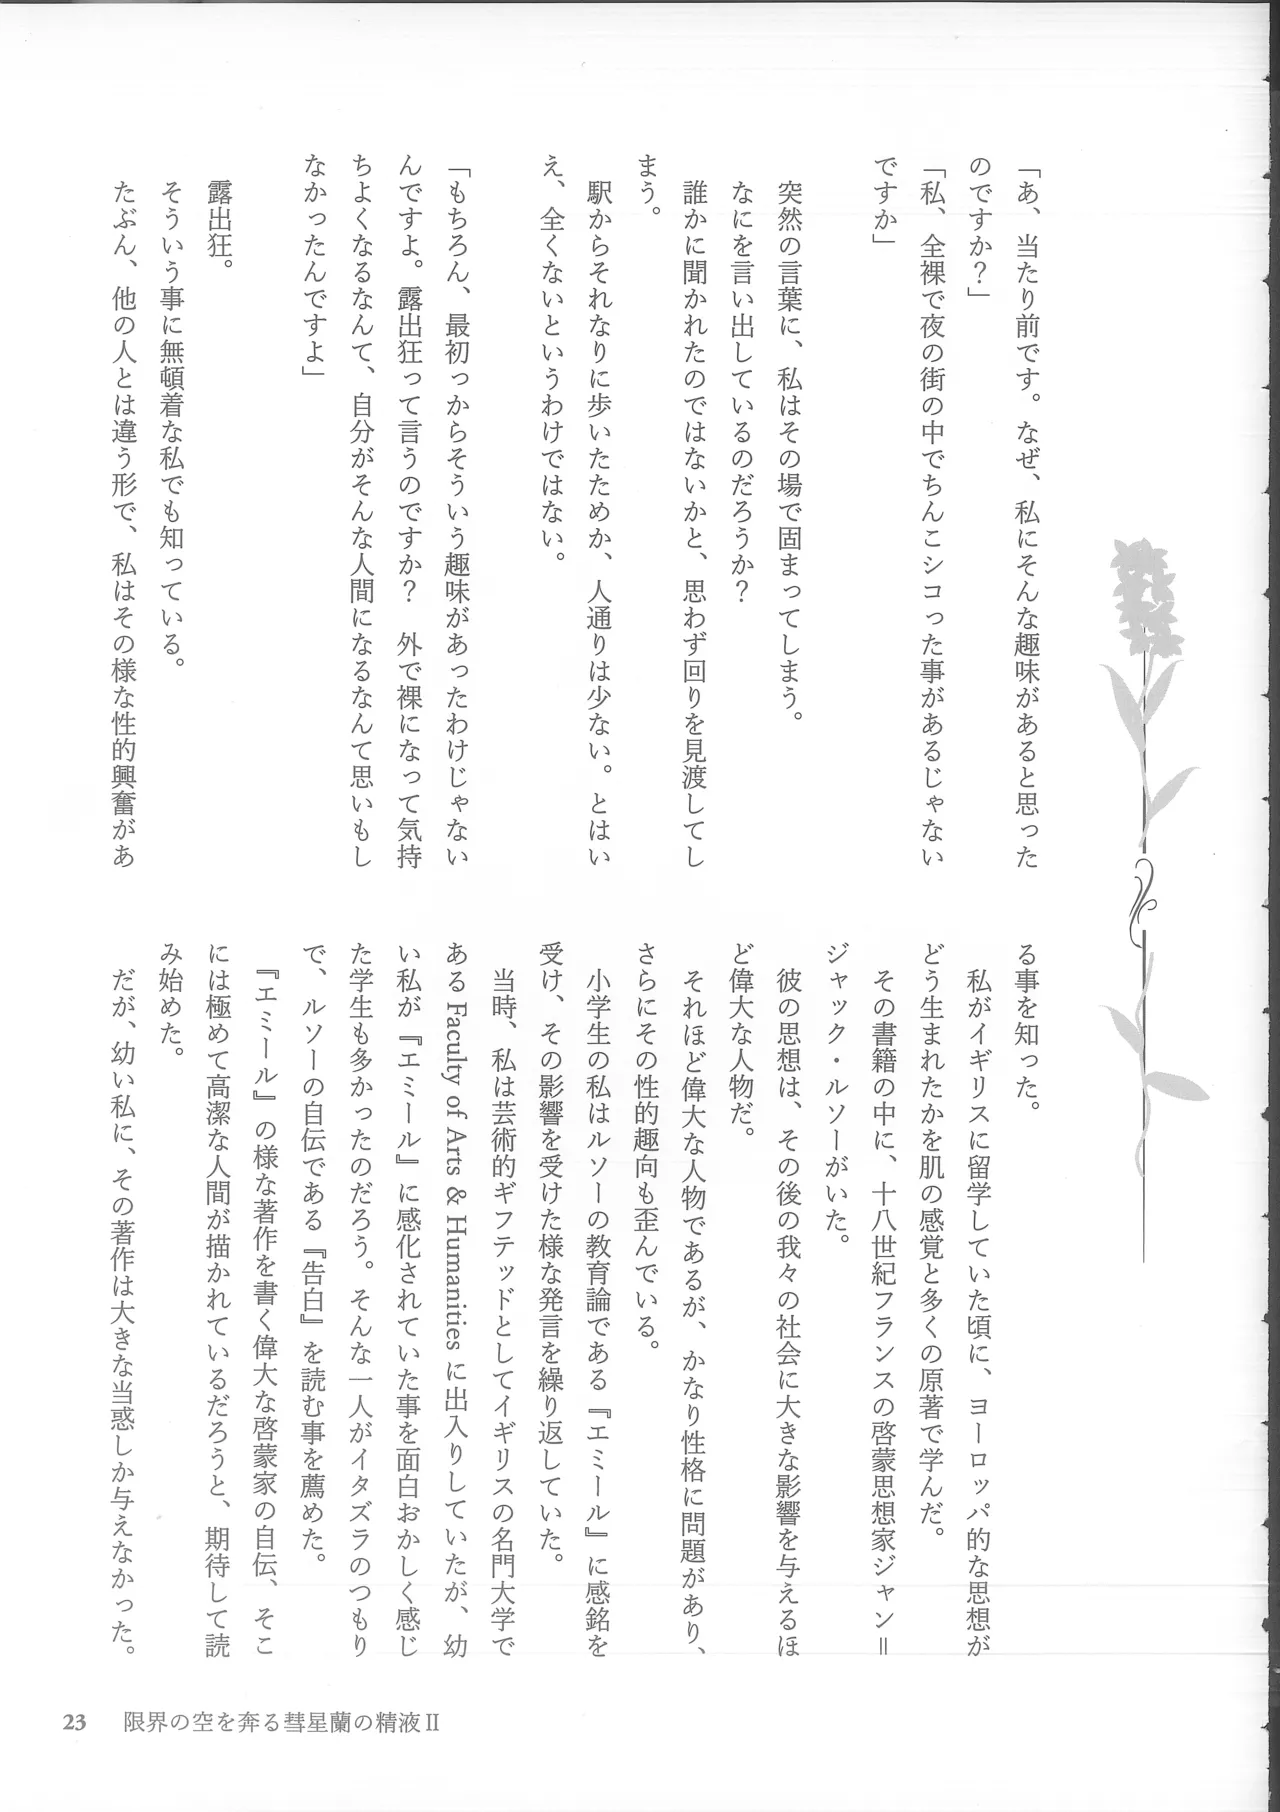 「あ、当たり前です。なぜ、私にそんな趣味があると思った
のですか？」
「私、全裸で夜の街の中でちんこシコった事があるじゃない
ですか」
突然の言葉に、私はその場で固まってしまう。
なにを言い出しているのだろうか？
誰かに聞かれたのではないかと、思わず回りを見渡してし
まう。
駅からそれなりに歩いたためか、人通りは少ない。とはい
え、全くないというわけではない。
「もちろん、最初っからそういう趣味があったわけじゃない
んですよ。露出狂って言うのですか？　外で裸になって気持
ちよくなるなんて、自分がそんな人間になるなんて思いもし
なかったんですよ」
露出狂。
そういう事に無頓着な私でも知っている。
たぶん、他の人とは違う形で、私はその様な性的興奮があ
る事を知った。
私がイギリスに留学していた頃に、ヨーロッパ的な思想が
どう生まれたかを肌の感覚と多くの原著で学んだ。
その書籍の中に、十八世紀フランスの啓蒙思想家ジャン＝
ジャック・ルソーがいた。
彼の思想は、その後の我々の社会に大きな影響を与えるほ
ど偉大な人物だ。
それほど偉大な人物であるが、かなり性格に問題があり、
さらにその性的趣向も歪んでいる。
小学生の私はルソーの教育論である『エミール』に感銘を
受け、その影響を受けた様な発言を繰り返していた。
当時、私は芸術的ギフテッドとしてイギリスの名門大学で
ある Faculty of Arts & Humanities に出入りしていたが、幼
い私が『エミール』に感化されていた事を面白おかしく感じ
た学生も多かったのだろう。そんな一人がイタズラのつもり
で、ルソーの自伝である『告白』を読む事を薦めた。
『エミール』の様な著作を書く偉大な啓蒙家の自伝、そこ
には極めて高潔な人間が描かれているだろうと、期待して読
み始めた。
だが、幼い私に、その著作は大きな当惑しか与えなかった。
23 限界の空を奔る彗星蘭の精液Ⅱ